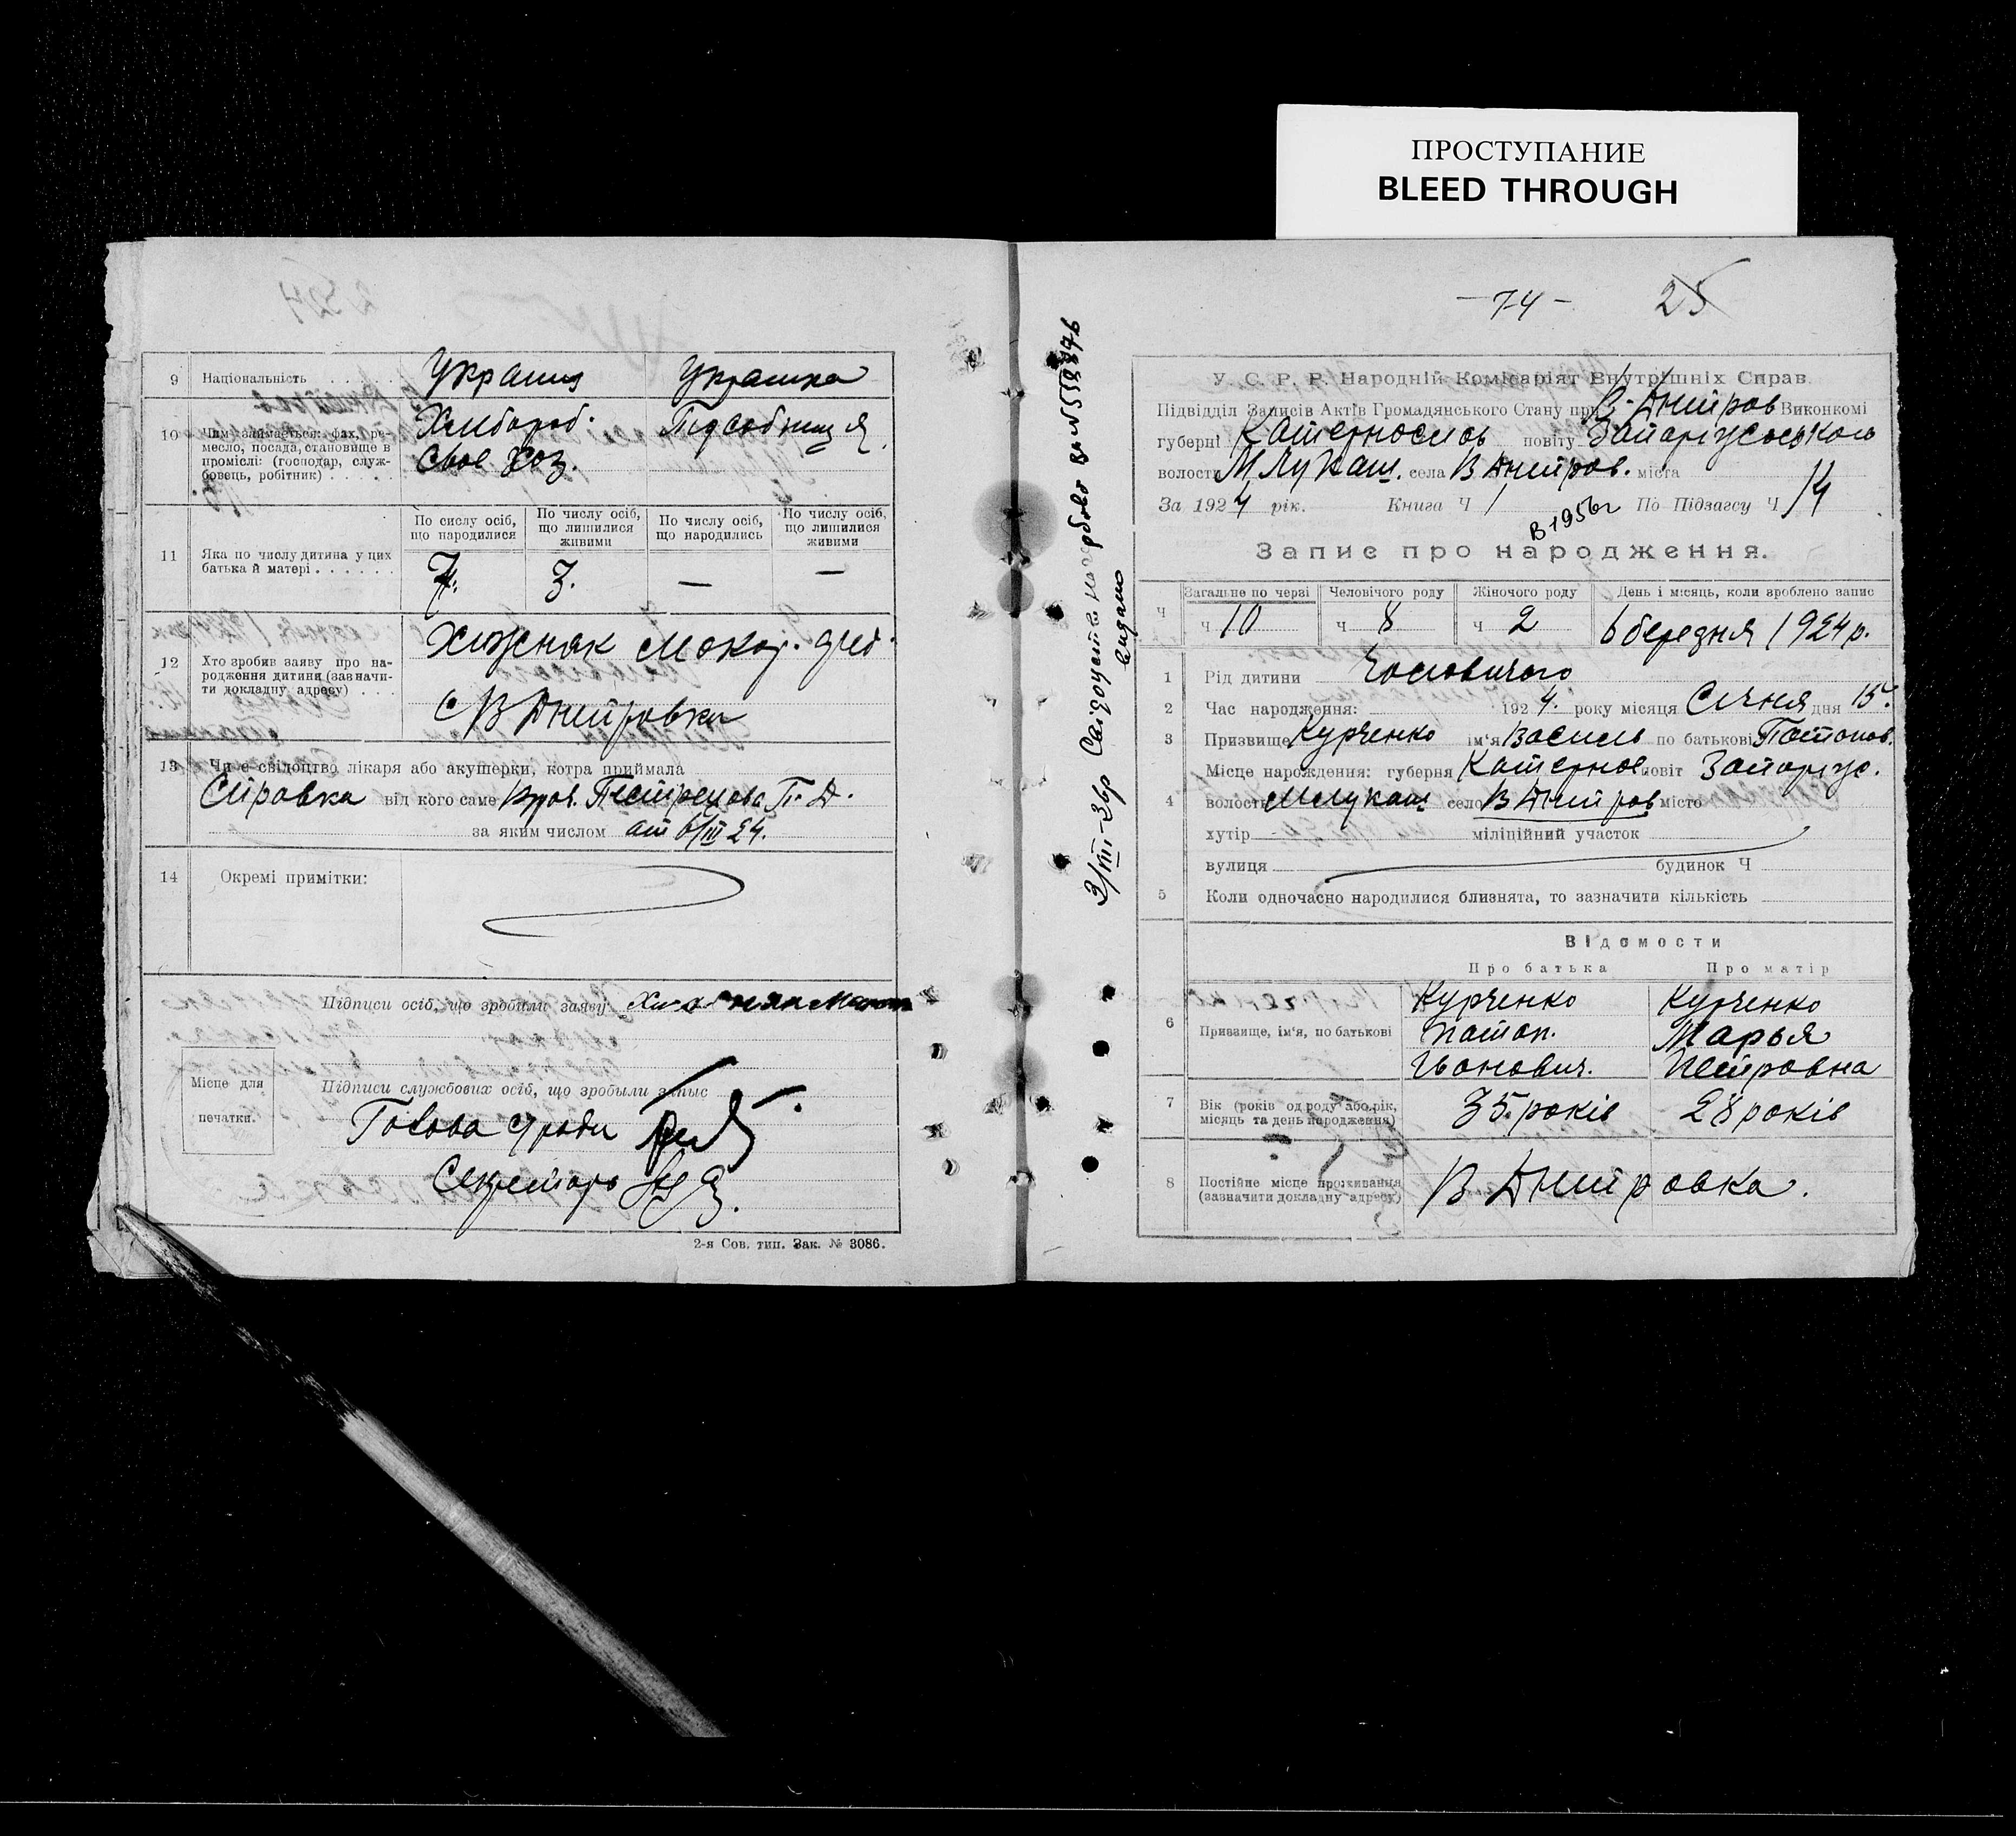 ПРОСТУПАНИЕ
BLEED THROUGH
9 Національність Українц Українка
10 Чим займається: фах, ре-
месло, посада, становище в
промислі: (господар, служ-
бовець, робітник)
Хлибороб. Підсобниця
Своє Хоз.
11 Яка по числу дитина у цих
батька й матері
По сислу осіб, що народилися
По числу осіб, що лишилися живими
По числу осіб, що народились
По числу осіб, що лишилися живими
3. — —
12 Хто зробив заяву про на-
родження дитини (зазначи-
ти докладну адресу)
Хижняк Макар.
с В Дмитровка
13 Чи є свідоцтво лікаря або акушерки, котра приймала
Справка від кого саме
за яким числом от 6/III 24.
14 Окремі примітки:
Підписи осіб, що зробили заяву
Місце для
печатки.
Підписи службових осіб, що зробыли запыс
Голова
Секретарь
2-я Сов. тип. Зак. № 3086.
— 74 — 25
У. С. Р. Р. Народній Комісаріят Внутрішніх Справ.
Підвідділ Записів Актів Громадянського Стану при В-Дмитров Виконкомі
губерні Катеринослов повіту Запорізського
волости М Лукаш. села В Дмитров. міста
За 1924 рік. Книга Ч 1 По Підзагсу Ч 14
В-1956г
Запис про народження.
Загальне по черзі Человічого роду Жіночого роду День і місяць, коли зроблено запис
Ч ч 10 ч 8 ч 2 6 березня 1924 р.
1 Рід дитини Чоловичого
2 Час народження: 1924. року місяця Січня дня 15.
3 Призвище Курченко ім'я Василь по батькові Потапов.
4 Місце нарождення: губерня Катеринос. повіт Запоріз.
волость М Лукаш село В Дмитров місто
хутір міліційний участок
вулиця будинок Ч
5 Коли одночасно народилися близнята, то зазначити кількість
Відомости
Про батька Про матір
6 Призвище, ім'я, по батькові
Курченко Курченко
Потап. Марья
Іванович. Петровна
7 Вік (років од роду або рік,
місяць та день народження)
35. років 28 років
8 Постійне місце проживання
(зазначити докладну адресу)
В Дмитровка.